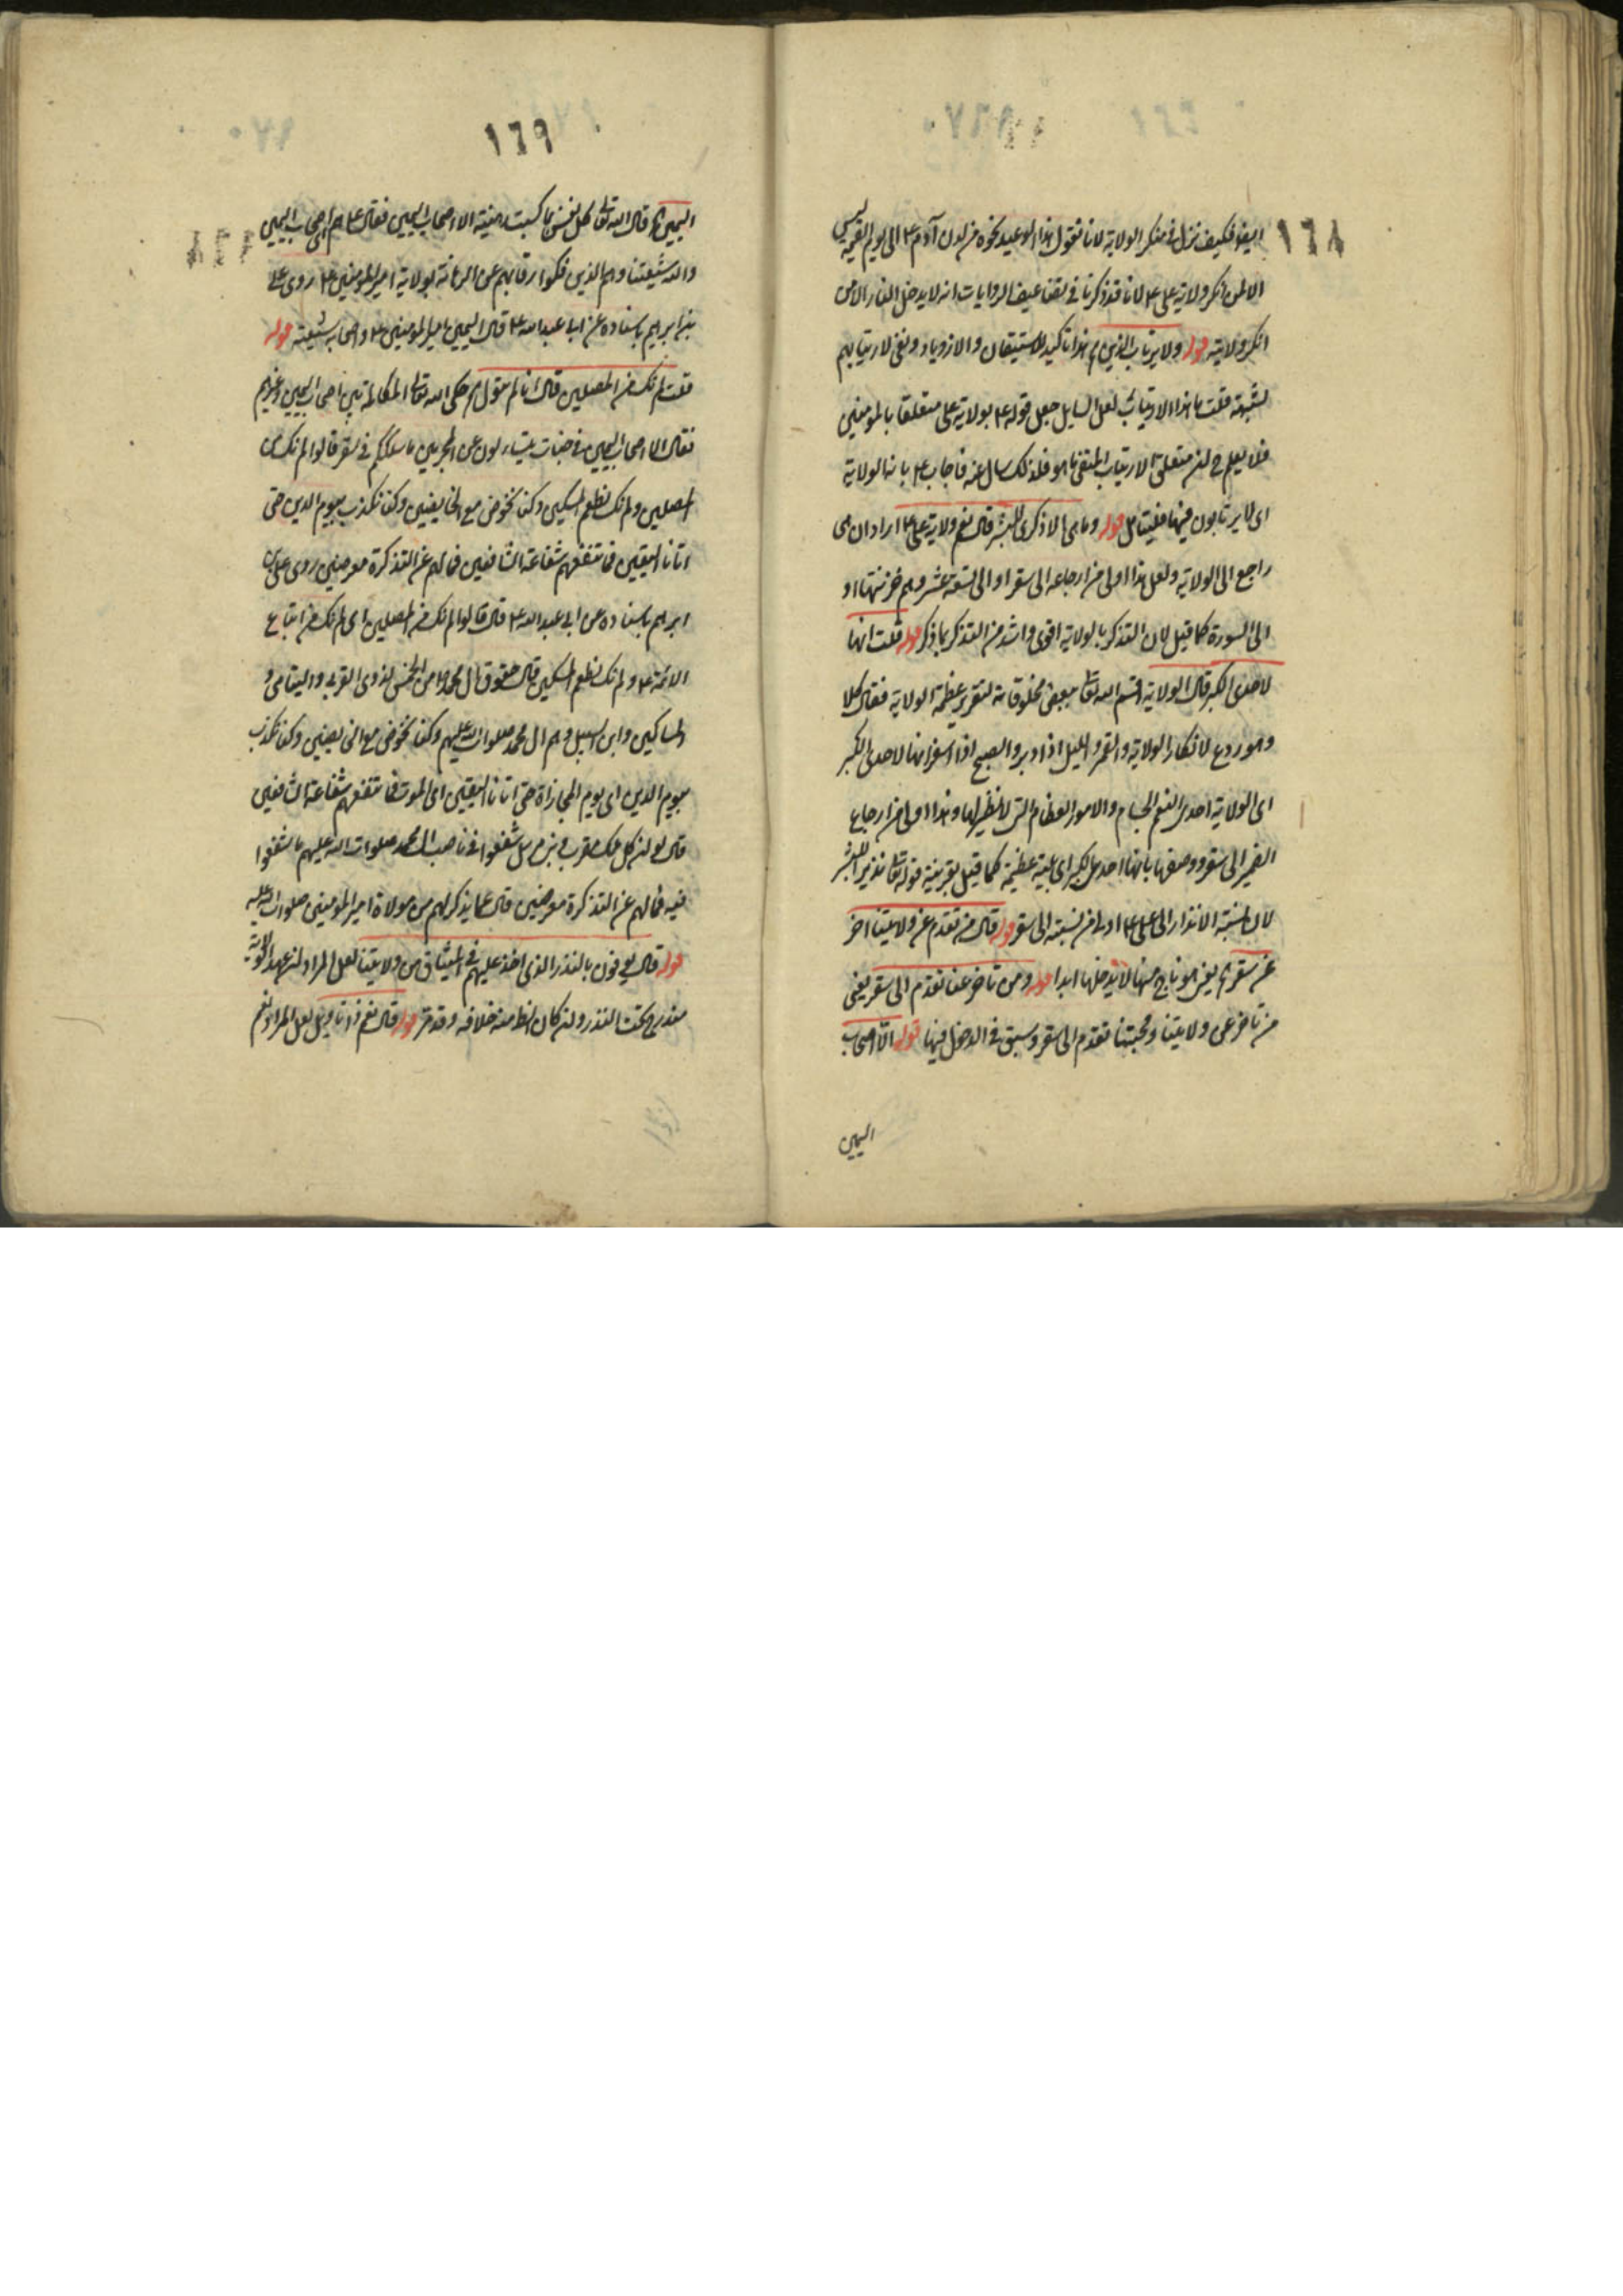 ١٦٨
ايضا فكيف نزل في منكر الولاية لانا نقول هذا الوعيد نحوه من لدن آدم ع الى يوم القيمة ليس
الا لمن انكر ولاية علي ع لانا قد ذكرنا في تضاعيف الروايات انه لا يدخل النار الا من
انكر ولايته قوله ولا يرتاب الذين هذا تاكيد للاستيقان والازدياد ونفي لارتيابهم
لشبهة قلت ما هذا الارتياب لعل السايل جعل قوله ع بولاية علي متعلقا بالمؤمنين
فلم يعلم ح ان متعلق الارتياب المنفي ما هو فلذلك سال عنه فاجاب ع بانه الولاية
اى لا يرتابون فيها فليتامل قوله وما هى الا ذكرى للبشر قال نعم ولاية علي ع اراد ان هى
راجع الى الولاية ولعل هذا اولى من ارجاعه الى سقر او الى تسعة عشر وهم خزنتها او
الى السورة كما قيل لان التذكر بالولاية اقوى واشد من التذكر بما ذكر قوله قلت انها
لاحدى الكبر قال الولاية اقسم الله تعالى ببعض مخلوقاته لتقرير عظمة الولاية فقال كلا
وهو ردع لانكار الولاية والقمر والليل اذا دبر والصبح اذا اسفر انها لاحدى الكبر
اى الولاية احدى النعم الجسام والامور العظام التى لا نظير لها وهذا اولى من ارجاع
الضمير الى سقر ووصفها بانها احدى الكبر اى بلية عظيمة كما قيل بقرينة قوله تعالى نذيرا للبشر
لان نسبة الانذار الى علي ع اولى من نسبته الى سقر قوله قال من تقدم عن ولايتنا اخر
عن سقر يعنى هو ناج منها لا يدخلها ابدا قوله ومن تاخر عنا تقدم الى سقر يعنى
من تاخر عن ولايتنا ومحبتنا تقدم الى سقر وسبق في الدخول فيها قوله الا اصحاب
اليمين
١٦٩
اليمين قال الله تعالى كل نفس بما كسبت رهينة الا اصحاب اليمين فقال ع هم اصحاب اليمين
والله شيعتنا وهم الذين فكوا رقابهم عن الرهانة بولاية امير المؤمنين ع روى علي
بن ابراهيم باسناده عن ابي عبد الله ع قال اليمين امير المؤمنين ع واصحابه شيعته قوله
قلت لم نك من المصلين قال انا لم نتول حكى الله تعالى المكالمة بين اصحاب اليمين وغيرهم
فقال الا اصحاب اليمين في جنات يتساءلون عن المجرمين ما سلككم في سقر قالوا لم نك من
المصلين ولم نك نطعم المسكين وكنا نخوض مع الخايضين وكنا نكذب بيوم الدين حتى
اتانا اليقين فما تنفعهم شفاعة الشافعين فما لهم عن التذكرة معرضين روى علي بن
ابراهيم باسناده عن ابي عبد الله ع قال قالوا لم نك من المصلين اى لم نك من اتباع
الائمة ع ولم نك نطعم المسكين قال حقوق آل محمد من الخمس لذوى القربى واليتامى و
المساكين وابن السبيل وهم ال محمد صلوات الله عليهم وكنا نخوض مع الخايضين وكنا نكذب
بيوم الدين اى يوم المجازاة حتى اتانا اليقين اى الموت فما تنفعهم شفاعة الشافعين
قال لو ان كل ملك مقرب ونبي مرسل شفعوا في ناصب ال محمد صلوات الله عليهم ما شفعوا
فيه فما لهم عن التذكرة معرضين قال عما يذكر لهم من موالاة امير المؤمنين صلوات الله عليه
قوله قال يوفون بالنذر الذى اخذ عليهم في الميثاق من ولايتنا لعل المراد ان عهد الولاية
مندرج تحت النذر وان كان الظ منه خلافه وقد مر قوله قال نعم ذا تاويل لعل المراد نعم